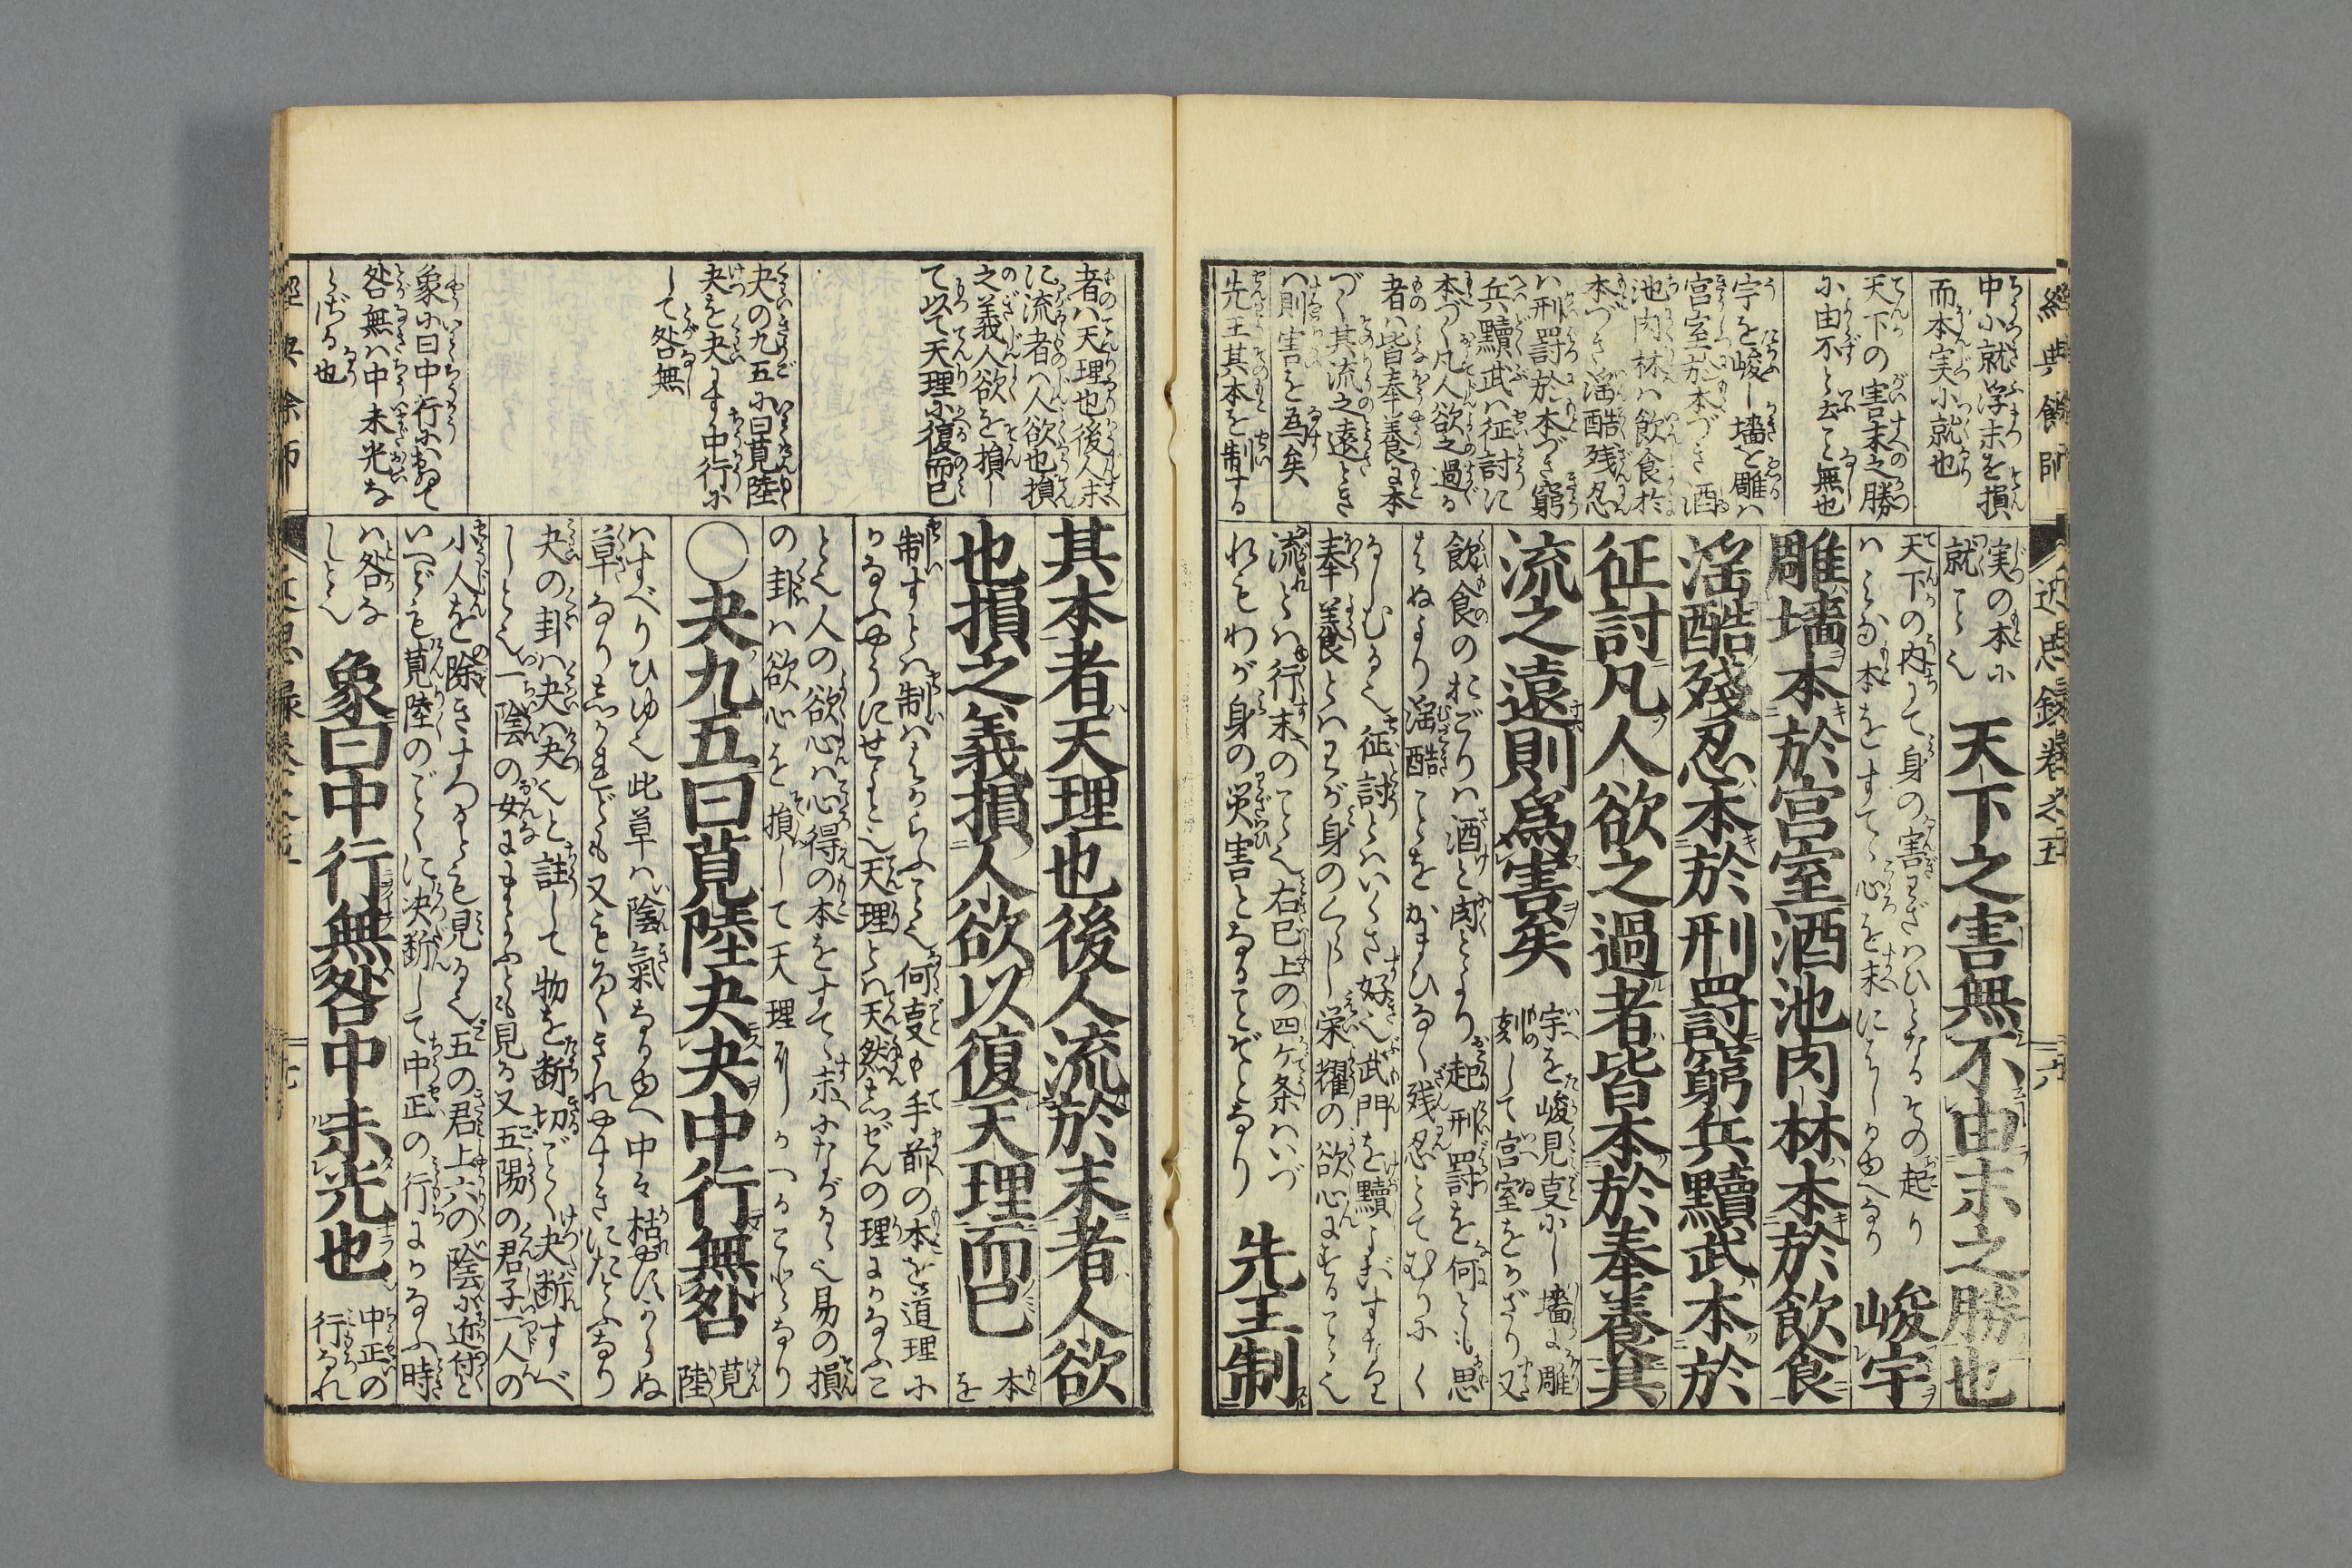 經典餘師
近思録卷之五
六
中に就浮末を損
而本実に就也
天下の害末之勝
に由不と云こと無也
宇を峻し墻を雕ハ
宮室於本づき酒
池肉林ハ飲食於
本づき淫酷残忍
ハ刑罰於本づき窮
兵黷武ハ征討に
本づく凡人欲之過る
者ハ皆奉養に本
づく其流之遠とき
ハ則害を為矣
先王其本を制する
実の本に
就こと也
天下之害無不由末之勝也
天下の内にて身の害わざはひとなるその起り
ハみな本をすてゝ心を末にうしるゆへなり
峻宇
雕墻本於宮室酒池肉林本於飲食
淫酷殘忍本於刑罰窮兵黷武本於
征討凡人欲之過者皆本於奉養其
流之遠則爲害矣
宇を峻見事にし墻に雕
刻して宮室をかざり又
飲食のおごりハ酒と肉とより起刑罰を何とも思
はぬより淫酷ことをおもひなく残忍とてむりにく
るしむる也征討とハいくさ好也武門を黷しほすなり
奉養とハわが身のくらし栄耀の欲心にすること也
流とハ行末のこと也右已上の四ケ条ハいづ
れもわが身の災害となることぞとなり
先王制
者ハ天理也後人末
に流者ハ人欲也損
之義人欲を損し
て以て天理に復而已
夬の九五に曰莧陸
夬を夬にす中行に
して咎無
象に曰中行におゐて
咎無ハ中未光な
らざる也
其本者天理也後人流於末者人欲
也損之義損人欲以復天理而已
本を
制すとハ制ハはからふこと也何事も手前の本を道理に
かなふやうにせよと也天理とハ天然しぜんの理にかなふこ
と也人の欲心ハ心得の本をすてゝ末にながるゝ也易の損
の卦ハ欲心を損して天理に引かへることゝなり
○夬九五曰莧陸夬夬中行無咎
莧陸
ハすべりひゆ也此草ハ陰氣なるゆへ中々枯やすからぬ
草なりしかれども又もろくきれやすきにたとふなり
夬の卦ハ夬ハ決也と註して物を断切ごとく決断すべ
しと也一陰の女にまよふとも見る又五陽の君子一人の
小人を除きすつるとも見る也五の君上六の陰に近付と
いへども莧陸のごとくに決断して中正の行にかなふ時
ハ咎な
しと也
象曰中行無咎中未光也
中正の
行なれ